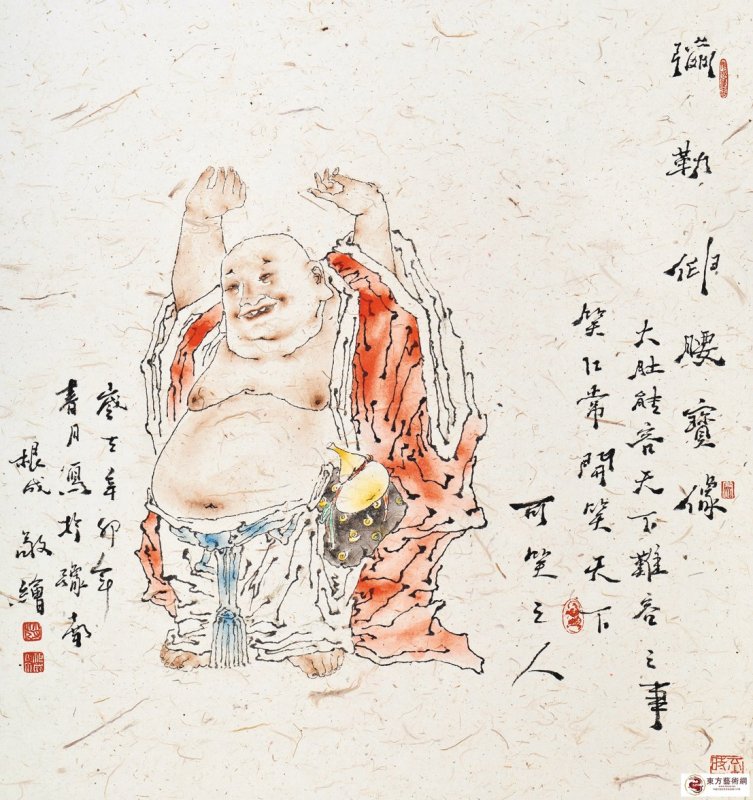 彌勒伸腰寶像
大肚能容天下難容之事
笑口常開笑天下
可笑之人
歲在辛卯年
月寫於
根成敬繪
東方藝術網